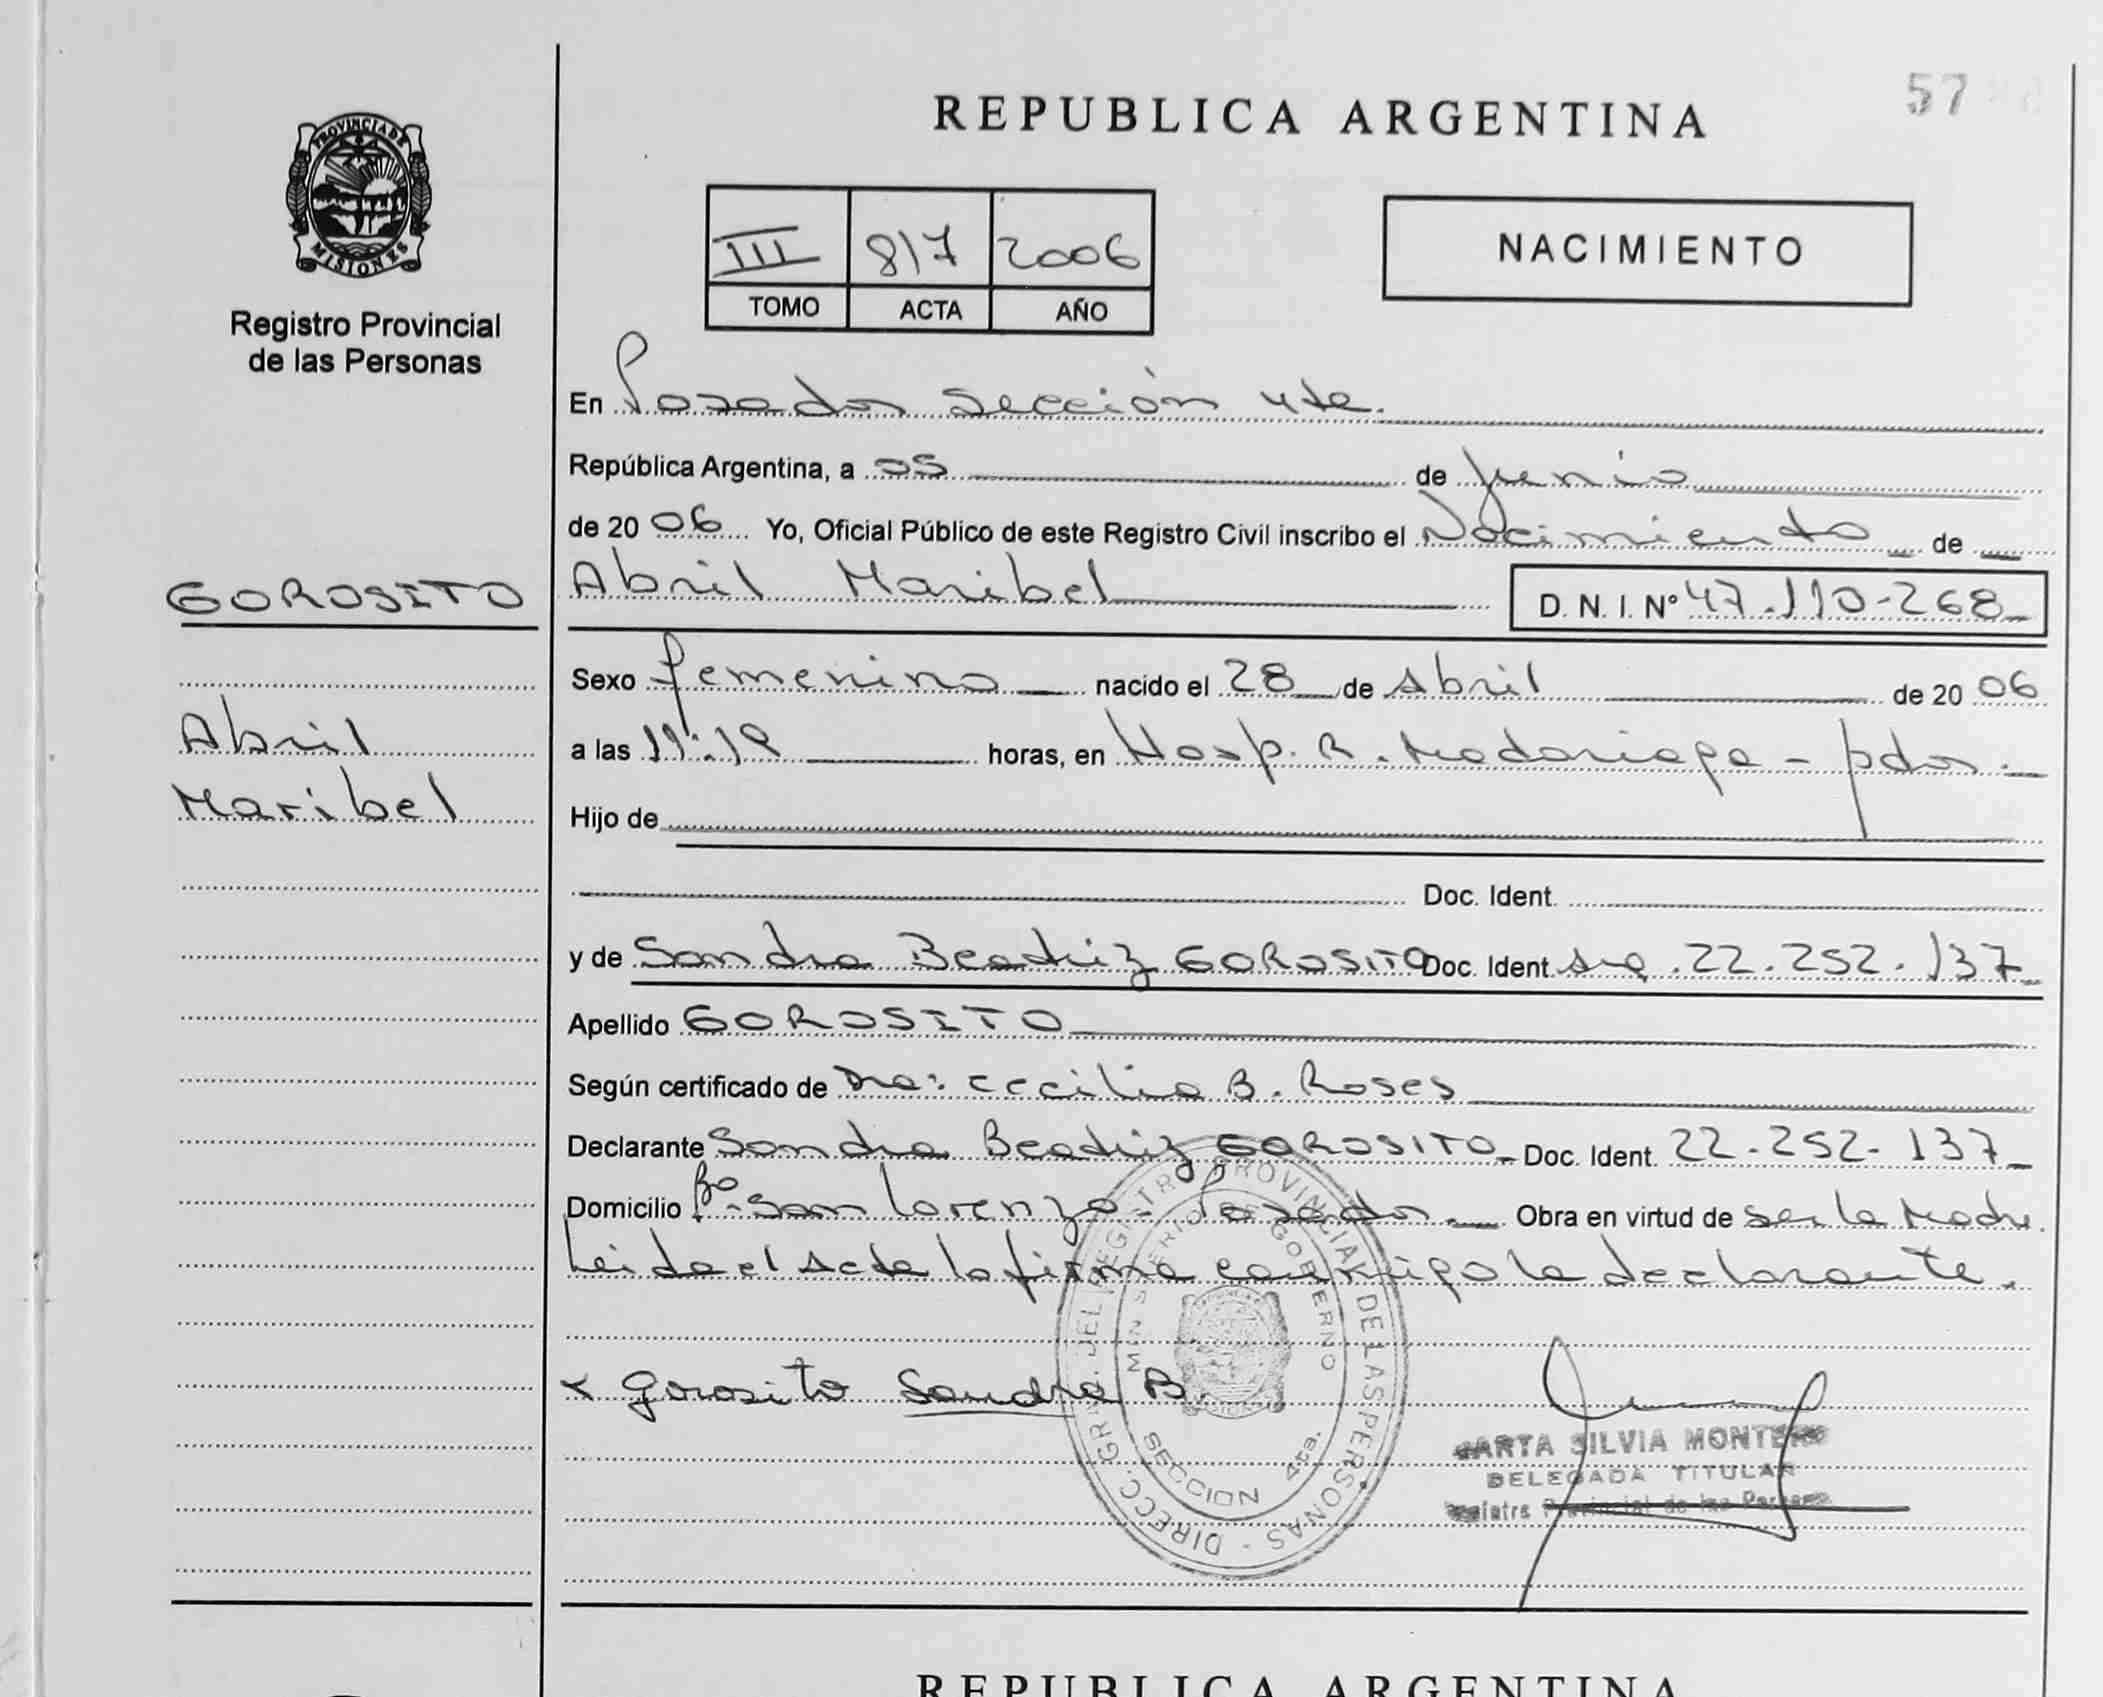 57
REPUBLICA ARGENTINA
PROVINCIA DE
MISIONES
Registro Provincial
de las Personas
III 817 2006
TOMO ACTA AÑO
NACIMIENTO
En Posadas Sección 4ta.
República Argentina, a 05 de junio
de 20 06 Yo, Oficial Público de este Registro Civil inscribo el Nacimiento de
GOROSITO
Abril Maribel D. N. I. Nº 47.110-268
Sexo femenino nacido el 28 de Abril de 20 06
Abril
a las 11:19 horas, en Hosp. R. Madariaga - pdas.
Maribel
Hijo de
Doc. Ident.
y de Sandra Beatriz GOROSITO Doc. Ident. 22.252.137
Apellido GOROSITO
Según certificado de Dra: Cecilia B. Roses
Declarante Sandra Beatriz GOROSITO Doc. Ident. 22-252-137
Domicilio Bº San Lorenzo - Posadas. Obra en virtud de ser la Madre.
Leida el Acta la firma conmigo la declarante.
x Gorosito Sandra B.
DIRECC. GRAL. DEL REGISTRO PROVINCIAL DE LAS PERSONAS
MINISTERIO DE GOBERNO
SECCION 4ta.
MARTA SILVIA MONTERO
DELEGADA TITULAR
Registro Provincial de las Personas
REPUBLICA ARGENTINA